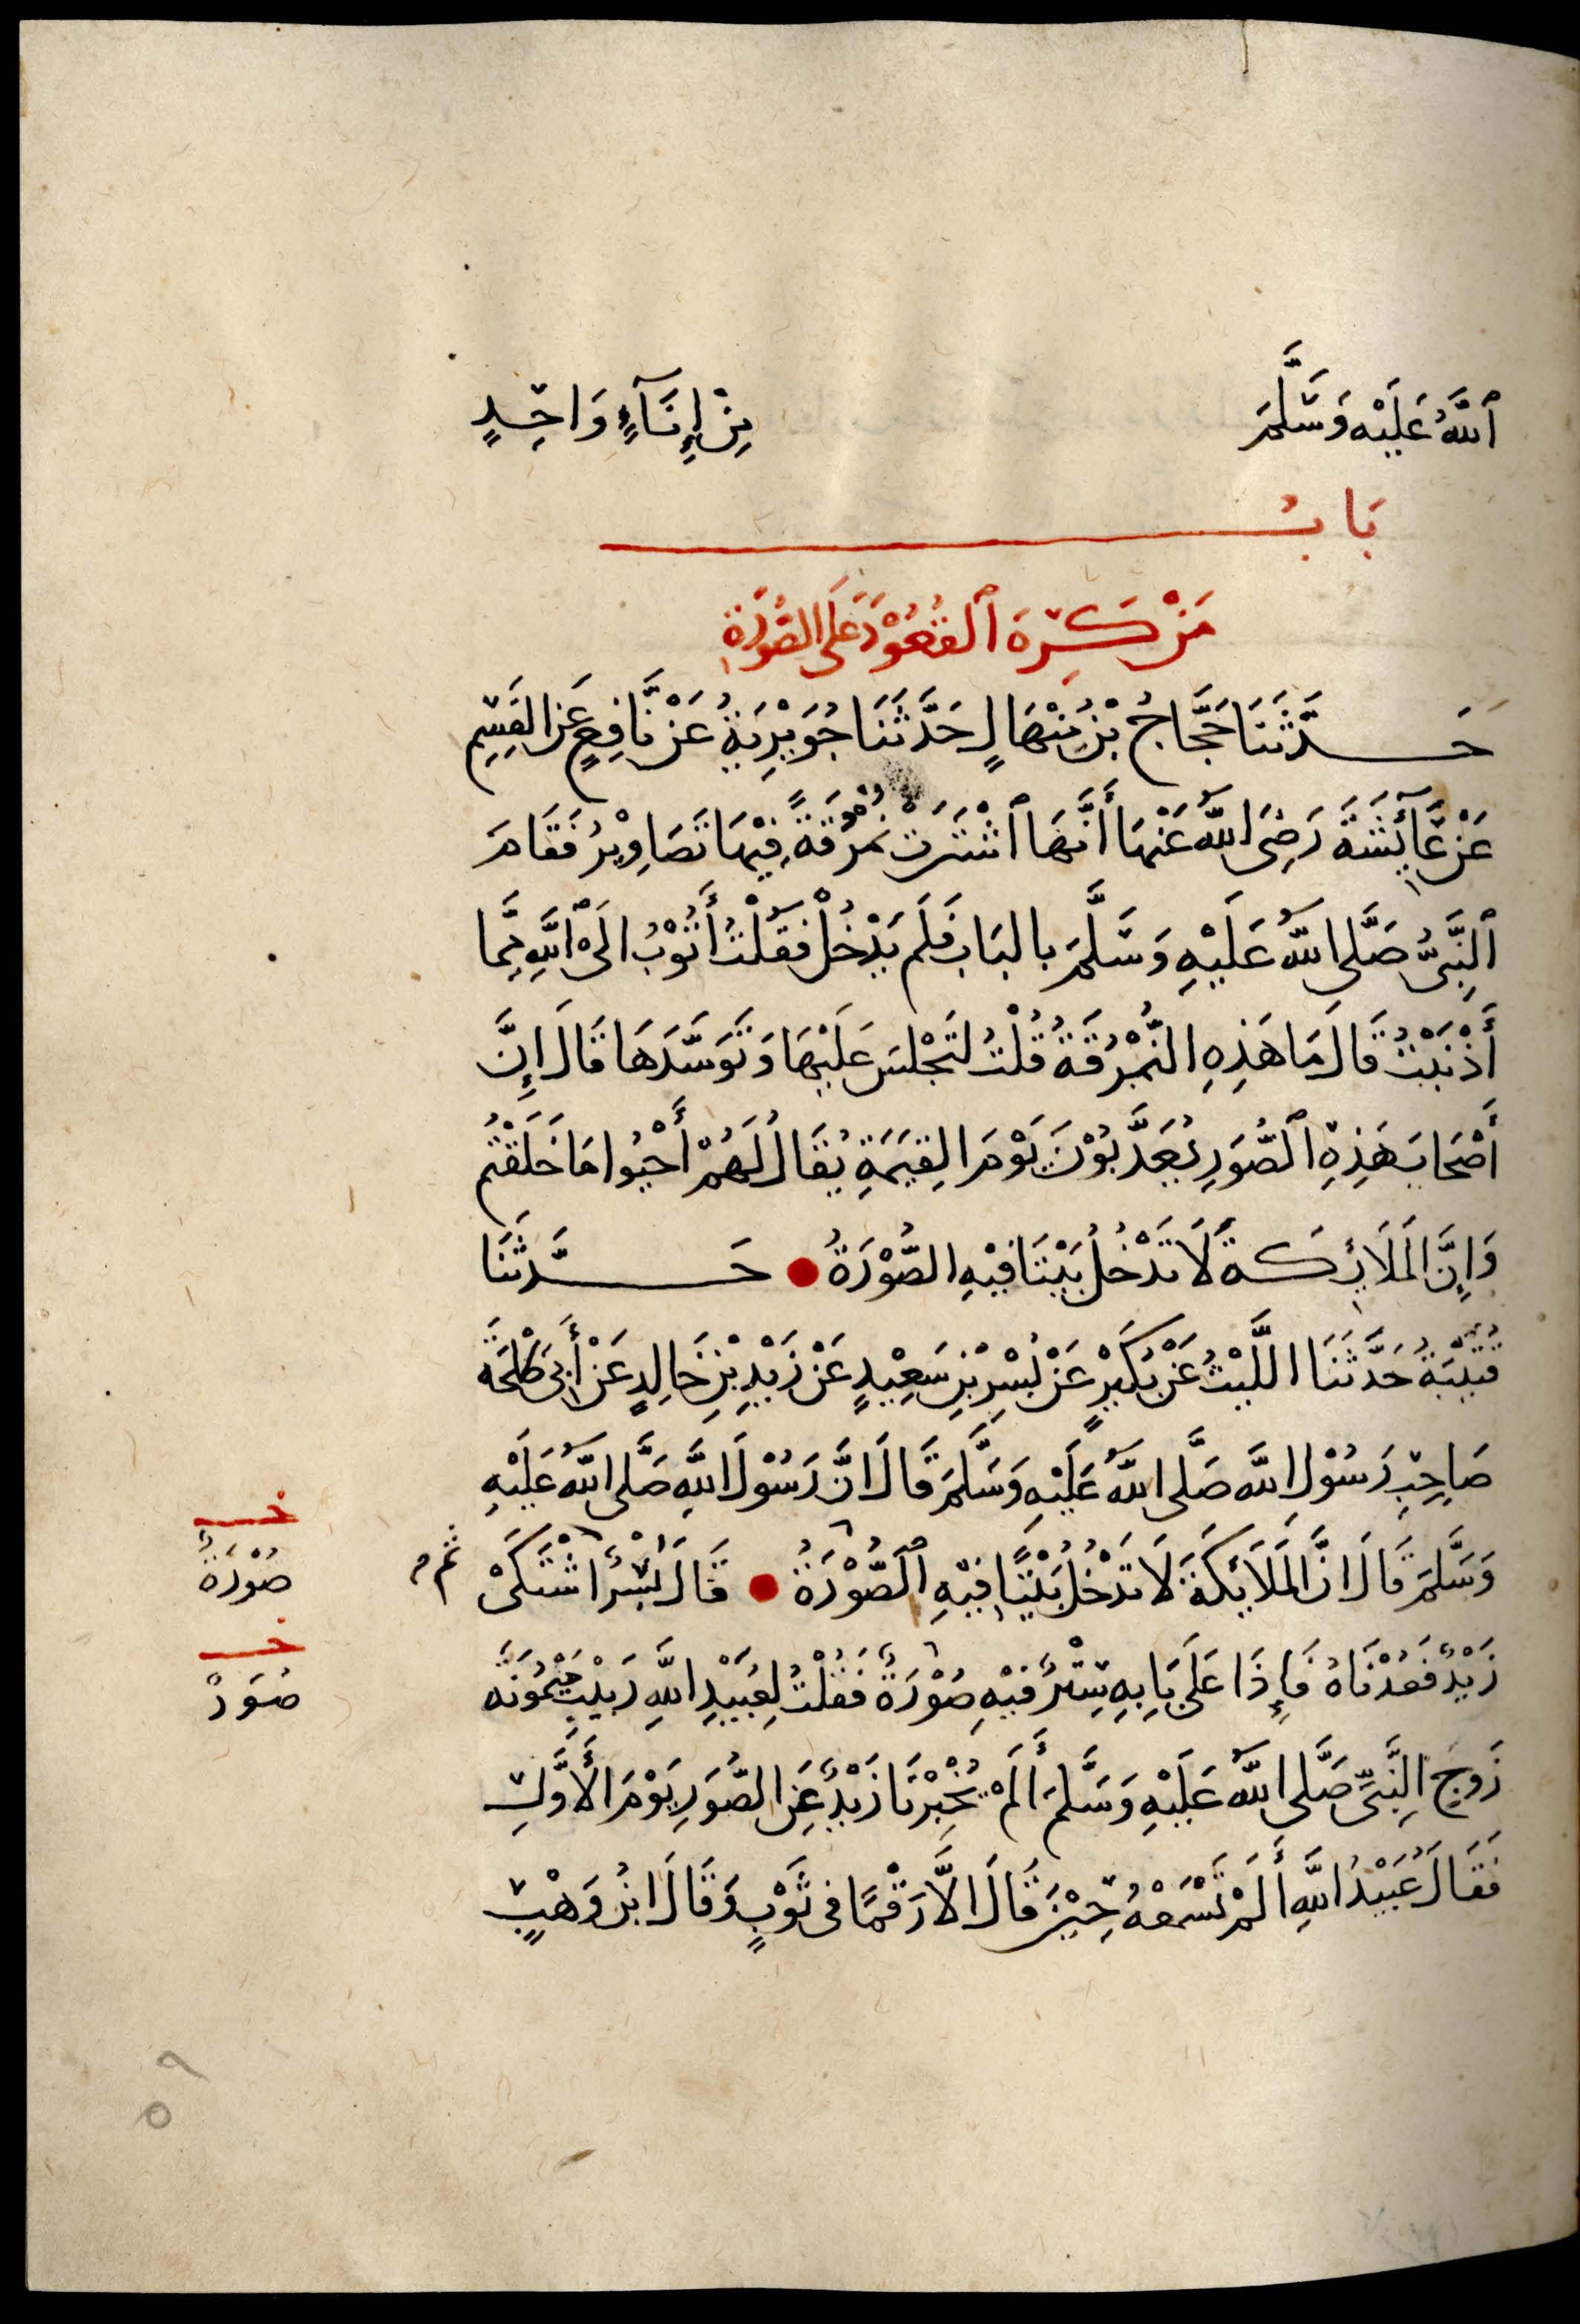 ٱللَّهُ عَلَيْهِ وَسَلَّمَ مِنْ إِنَآءٍ وَاحِدٍ
بَابُ
مَنْ كَرِهَ ٱلقُعُوْدَ عَلَى الصُّوْرَةِ
حَدَّثَنَا حَجَّاجُ بْنُ مِنْهَالٍ حَدَّثَنَا جُوَيْرِيَةُ عَنْ نَّافِعٍ عَنِ القَسِمِ
عَنْ عَآئِشَةَ رَضِىَ اللَّهُ عَنْهَا أَنَّهَا ٱشْتَرَتْ نُمْرُقَةً فِيْهَا تَصَاوِيْرُ فَقَامَ
ٱلنَّبِىُّ صَلَّى اللَّهُ عَلَيْهِ وَسَلَّمَ بِالبَابِ فَلَم يَدْخُلْ فَقُلْتُ أَتُوْبُ الَىْ ٱللَّهِ مِمَّا
أَذْنَبْتُ قَالَ مَا هَذِهِ النُّمْرُقَةُ قُلْتُ لتَجْلسَ عَلَيْهَا وَتَوَسَّدَهَا قَالَ إِنَّ
أَصْحَابَ هَذِهِ ٱلصُّوَرِ يُعَذَّبُوْنَ يَوْمَ القِيَمَةِ يُقَالُ لَهُمْ أَحْيُوا مَا خَلَقْتُم
وَإِنَّ المَلَائِكَةَ لَا تَدْخُلُ بَيْتًا فِيْهِ الصُّوْرَةُ ● حَدَّثَنَا
قُتَيْبَةُ حَدَّثَنَا اللَّيْثُ عَنْ بُكَيْرٍ عَنْ بُسْرِ بْنِ سَعِيْدٍ عَنْ زَيْدِ بْنِ خَالِدٍ عَنْ أَبِى طَلْحَةَ
صَاحِبِ رَسُوْلِ اللَّهِ صَلَّى اللَّهُ عَلَيْهِ وَسَلَّمَ قَالَ انَّ رَسُوْلَ اللَّهِ صَلَّى اللَّهُ عَلَيْهِ
وَسَلَّمَ قَالَ انَّ المَلَائِكَةَ لَا تَدْخُلُ بَيْتًا فِيْهِ ٱلصُّوْرَةُ ● قَالَ بُسْرٌ اشْتَكَىْ ثم
خـ
صُوْرَةٌ
زَيْدٌ فَعُدْنَاهُ فَإِذَا عَلَى بَابِهِ سِتْرٌ فِيْهِ صُوْرَةٌ فَقُلْتُ لِعُبَيْدِ اللَّهِ رَبِيْبِ مَيْمُونَةَ
خـ
صُوَرٌ
زَوجِ النَّبِىِّ صَلَّى اللَّهُ عَلَيْهِ وَسَلَّمَ أَلَمْ يُخْبِرْنَا زَيْدٌ عَنِ الصُّوَرِ يَوْمَ الأَوَّلِ
فَقَالَ عُبَيْدُ اللَّهِ أَلَمْ تَسْمَعْهُ حِيْنَ قَالَ الَّا رَقْمًا فى ثَوْبٍ وَقَالَ ابْنُ وَهْبٍ
٥٩